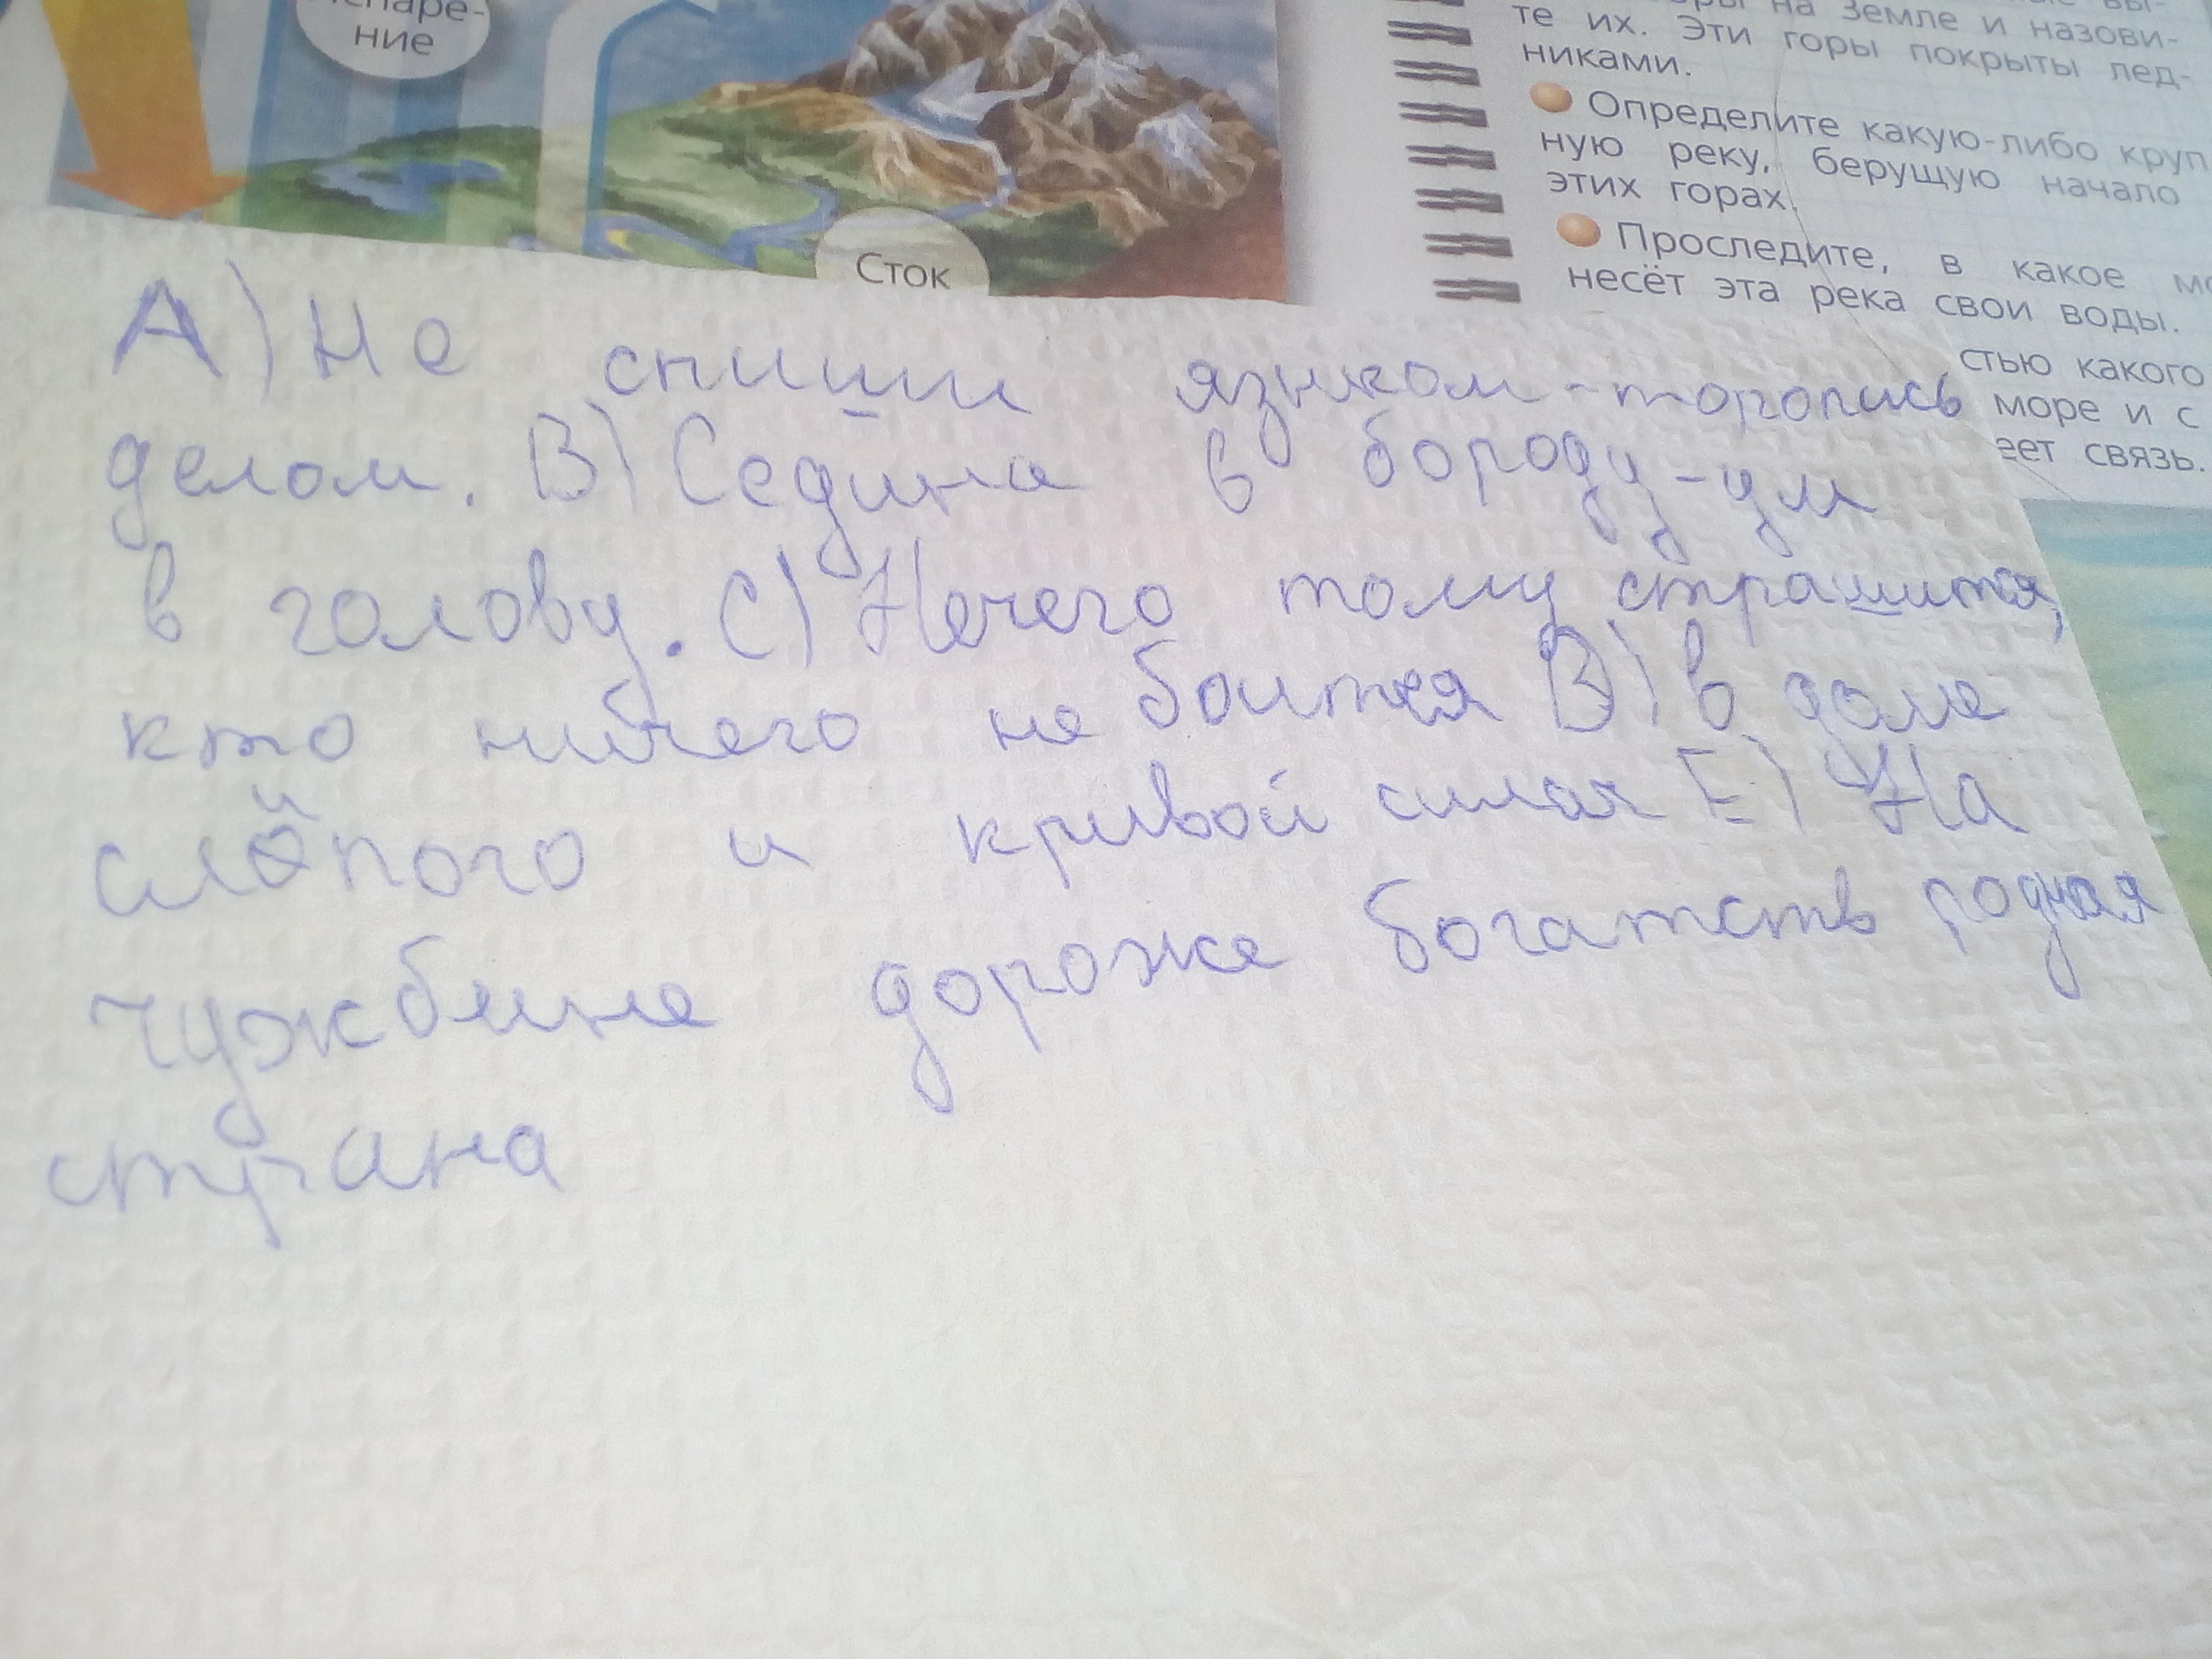 спаре-
ние
Сток
на Земле и назови-
те их. Эти горы покрыты лед-
никами.
Определите какую-либо круп
ную реку, берущую начало
этих горах.
Проследите, в какое
несёт эта река свои воды.
стью какого
море и с
еет связь.
А) Не спиши языком-торопись
делом. В) Седина в бороду-ум
в голову. С) Нечего тому страшится,
кто ничего не боится В) в доме
слепого и кривой силач Е) На
чужбине дороже богатств родная
страна